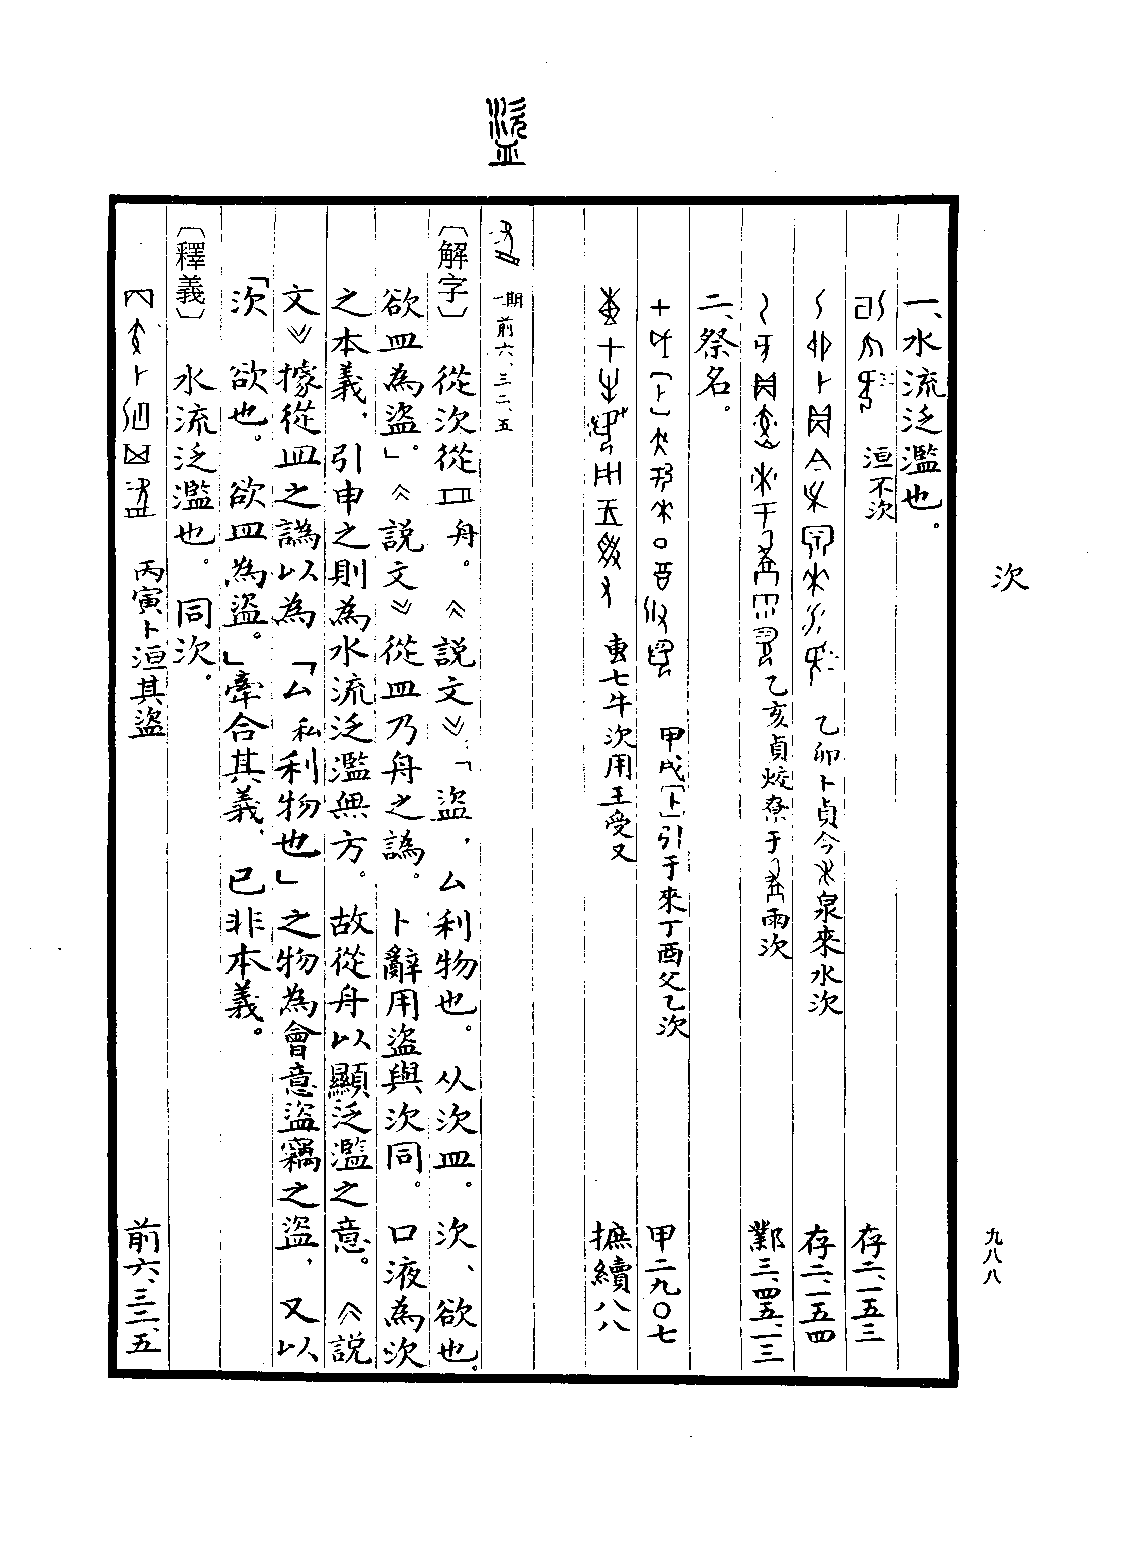 次
九八八
一、水流泛濫也。
洹不次 存二、一五三
乙卯卜貞今泉來水次 存二、一五四
乙亥貞烄尞于雨次 鄴三、四五、一三
二、祭名。
甲戌〔卜〕引于來丁酉父乙次 甲二九〇七
叀七牛次用王受又 摭續八八
盜
一期前六、三二、五
〔解字〕 從次從舟。《說文》:「盜,厶利物也。从次皿。次、欲也。
欲皿為盜。」《說文》從皿乃舟之譌。卜辭用盜與次同。口液為次
之本義,引申之則為水流泛濫無方。故從舟以顯泛濫之意。《說
文》據從皿之譌以為「厶私利物也」之物為會意盜竊之盜,又以
「次 欲也。欲皿為盜。」牽合其義,已非本義。
〔釋義〕 水流泛濫也。同次。
丙寅卜洹其盜 前六、三二、五